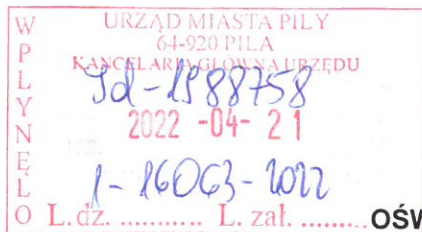 WPŁYNĘŁO
URZĄD MIASTA PIŁY
64-920 PIŁA
KANCELARIA GŁÓWNA URZĘDU
Id-1988758
2022 -04- 21
1-16063-2022
L.dz. ........... L. zał. ........
OŚW